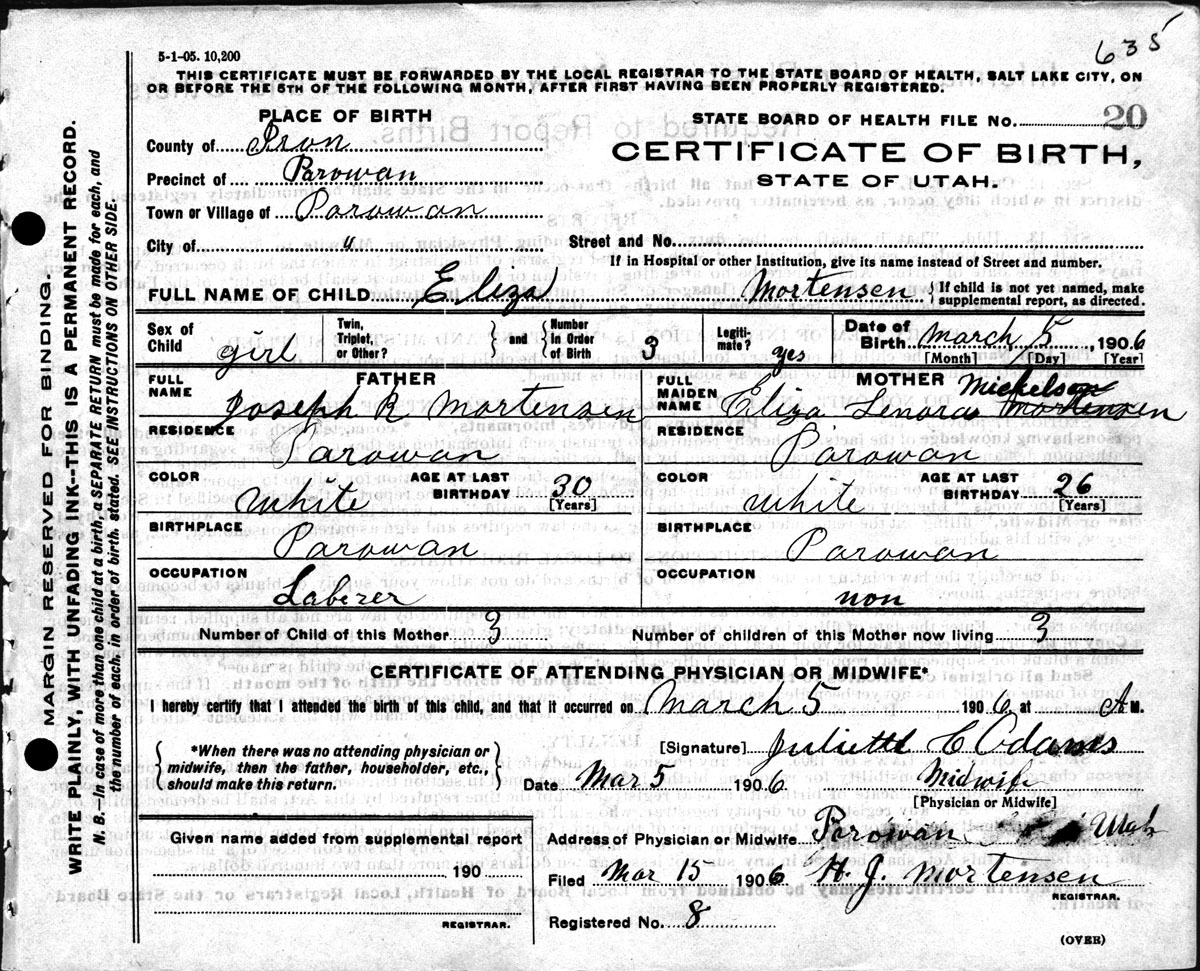 635
5-1-05. 10,200
THIS CERTIFICATE MUST BE FORWARDED BY THE LOCAL REGISTRAR TO THE STATE BOARD OF HEALTH, SALT LAKE CITY, ON
OR BEFORE THE 5TH OF THE FOLLOWING MONTH, AFTER FIRST HAVING BEEN PROPERLY REGISTERED.
PLACE OF BIRTH
County of Iron
Precinct of Parowan
Town or Village of Parowan
City of "
STATE BOARD OF HEALTH FILE No. 20
CERTIFICATE OF BIRTH,
STATE OF UTAH.
Street and No.
If in Hospital or other Institution, give its name instead of Street and number.
FULL NAME OF CHILD Eliza Mortensen { If child is not yet named, make
supplemental report, as directed.
Sex of Child girl
Twin, Triplet, or Other? } and { Number in Order of Birth 3
Legitimate? yes
Date of Birth March 5, 1906
[Month] [Day] [Year]
FATHER
FULL NAME Joseph R Mortensen
RESIDENCE Parowan
COLOR White
AGE AT LAST BIRTHDAY 30 [Years]
BIRTHPLACE Parowan
OCCUPATION Laberer
MOTHER
FULL MAIDEN NAME Eliza Lenora Mickelson Mortensen
RESIDENCE Parowan
COLOR White
AGE AT LAST BIRTHDAY 26 [Years]
BIRTHPLACE Parowan
OCCUPATION non
Number of Child of this Mother 3
Number of children of this Mother now living 3
CERTIFICATE OF ATTENDING PHYSICIAN OR MIDWIFE*
I hereby certify that I attended the birth of this child, and that it occurred on March 5 1906, at A M.
{ *When there was no attending physician or
midwife, then the father, householder, etc.,
should make this return. }
[Signature] Juliette C Adams
Date Mar 5 1906 Midwife
[Physician or Midwife]
Given name added from supplemental report
190
REGISTRAR.
Address of Physician or Midwife Parowan Utah
Filed Mar 15 1906 H. J. Mortensen
REGISTRAR.
Registered No. 8
(OVER)
MARGIN RESERVED FOR BINDING.
WRITE PLAINLY, WITH UNFADING INK--THIS IS A PERMANENT RECORD.
N. B.--In case of more than one child at a birth, a SEPARATE RETURN must be made for each, and
the number of each, in order of birth, stated. SEE INSTRUCTIONS ON OTHER SIDE.